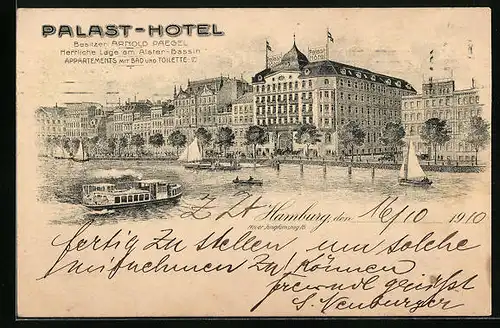 PALAST-HOTEL
Besitzer: ARNOLD PAEGEL
Herrliche Lage am Alster-Bassin
APPARTEMENTS MIT BAD UND TOILETTE
Z. Zt. Hamburg, den 16/10 1910
Neuer Jungfernstieg 16.
fertig zu stellen um solche
mitnehmen zu können
freundl gegrüßt
S. Neuburger